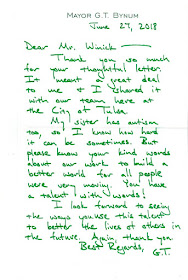 MAYOR G.T. BYNUM
June 27, 2018
Dear Mr. Winick —
Thank you so much
for your thoughtful letter.
It meant a great deal
to me & I shared it
with our team here at
the City of Tulsa.
My sister has autism
too, so I know how hard
it can be sometimes. But
please know your kind words
about our work to build a
better world for all people
were very moving. You have
a talent with words!
I look forward to seeing
the ways you use this talent
to better the lives of others in
the future. Again, thank you.
Best Regards,
G.T.